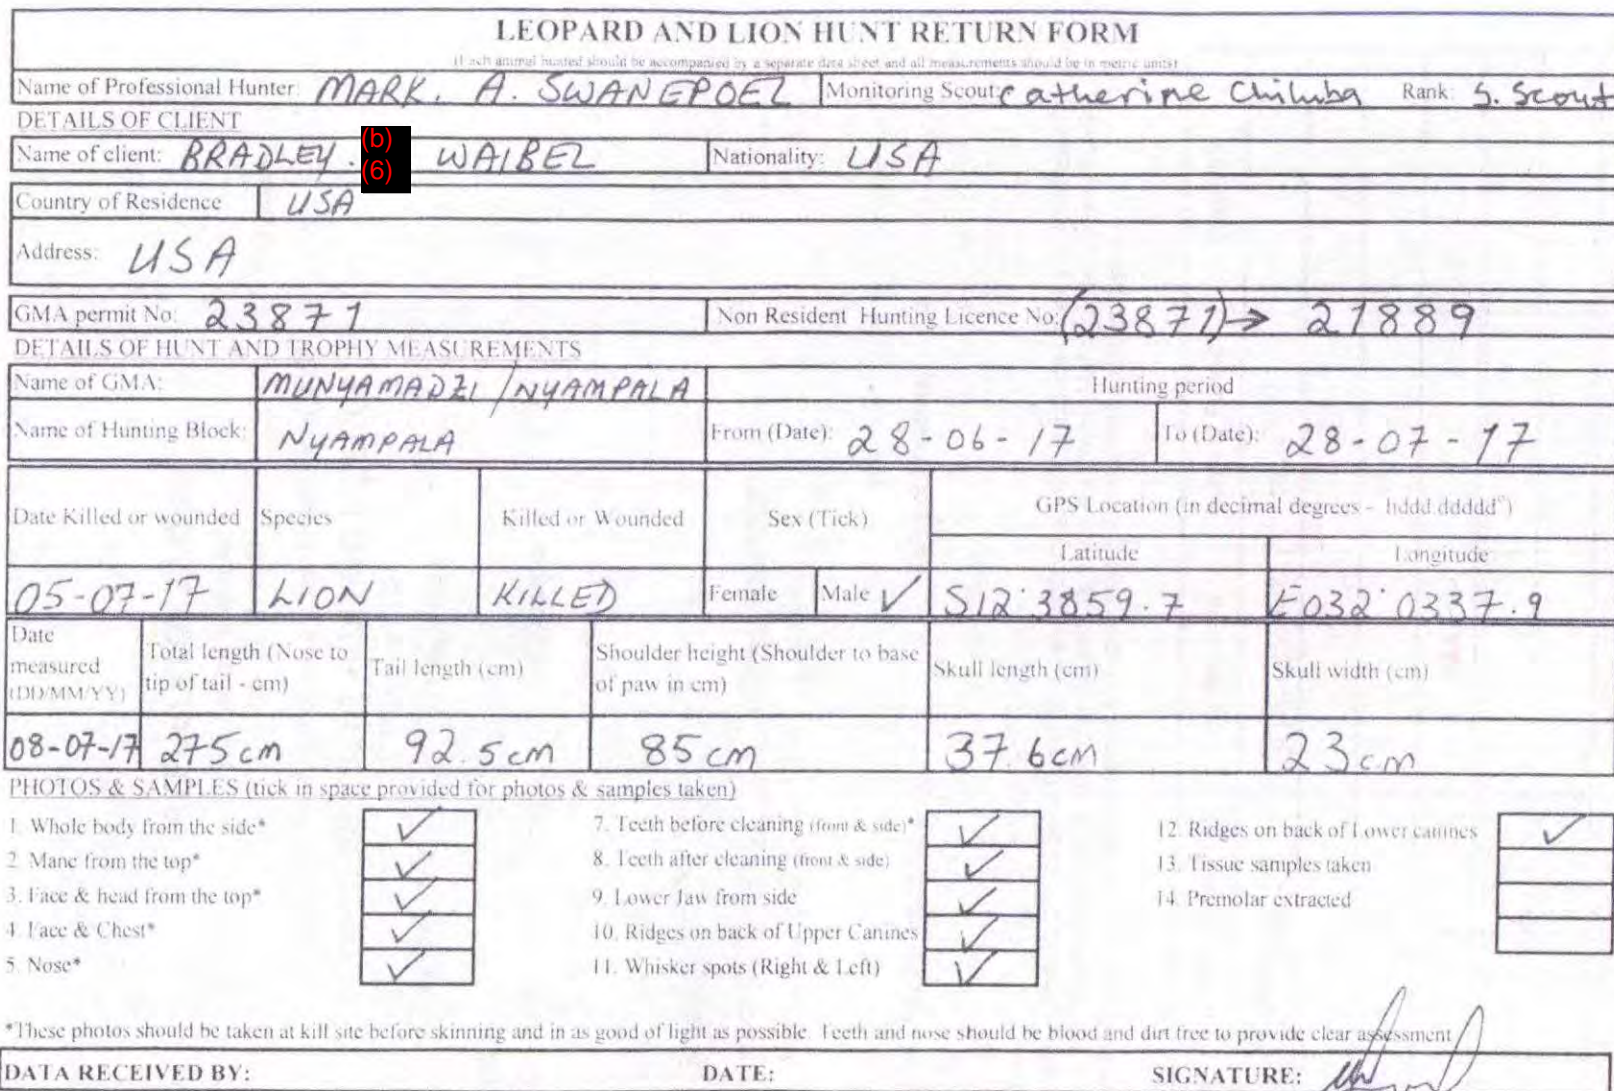 LEOPARD AND LION HUNT RETURN FORM
(Each animal hunted should be accompanied by a separate data sheet and all measurements should be in metric units)
Name of Professional Hunter: MARK. A. SWANEPOEL Monitoring Scout: Catherine Chiluba Rank: S. Scout
DETAILS OF CLIENT
Name of client: BRADLEY. (b) (6) WAIBEL Nationality: USA
Country of Residence USA
Address: USA
GMA permit No: 23871 Non Resident Hunting Licence No: (23871) → 21889
DETAILS OF HUNT AND TROPHY MEASUREMENTS
Name of GMA: MUNYAMADZI / NYAMPALA Hunting period
Name of Hunting Block: NYAMPALA From (Date): 28-06-17 To (Date): 28-07-17
Date Killed or wounded Species Killed or Wounded Sex (Tick) GPS Location (in decimal degrees - hddd.ddddd°)
Latitude Longitude
05-07-17 LION KILLED Female Male ✓ S12°3859.7 E032°0337.9
Date measured (DD/MM/YY) Total length (Nose to tip of tail - cm) Tail length (cm) Shoulder height (Shoulder to base of paw in cm) Skull length (cm) Skull width (cm)
08-07-17 275cm 92.5cm 85cm 37.6cm 23cm
PHOTOS & SAMPLES (tick in space provided for photos & samples taken)
1. Whole body from the side* ✓ 7. Teeth before cleaning (front & side)* ✓ 12. Ridges on back of Lower canines ✓
2. Mane from the top* ✓ 8. Teeth after cleaning (front & side) ✓ 13. Tissue samples taken
3. Face & head from the top* ✓ 9. Lower Jaw from side ✓ 14. Premolar extracted
4. Face & Chest* ✓ 10. Ridges on back of Upper Canines ✓
5. Nose* ✓ 11. Whisker spots (Right & Left) ✓
*These photos should be taken at kill site before skinning and in as good of light as possible. Teeth and nose should be blood and dirt free to provide clear assessment
DATA RECEIVED BY: DATE: SIGNATURE: